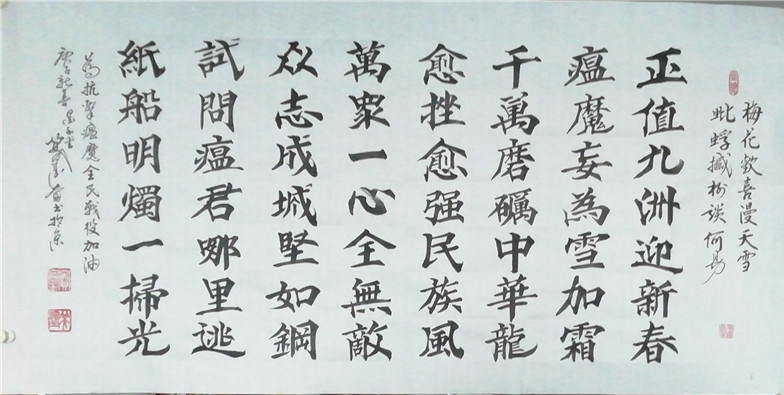 梅花歡喜漫天雪
蚍蜉撼樹談何易
正值九洲迎新春
瘟魔妄為雪加霜
千萬磨礪中華龍
愈挫愈强民族風
萬衆一心全無敵
众志成城堅如鋼
試問瘟君哪里逃
紙船明燭一掃光
為抗擊瘟魔全民戰役加油